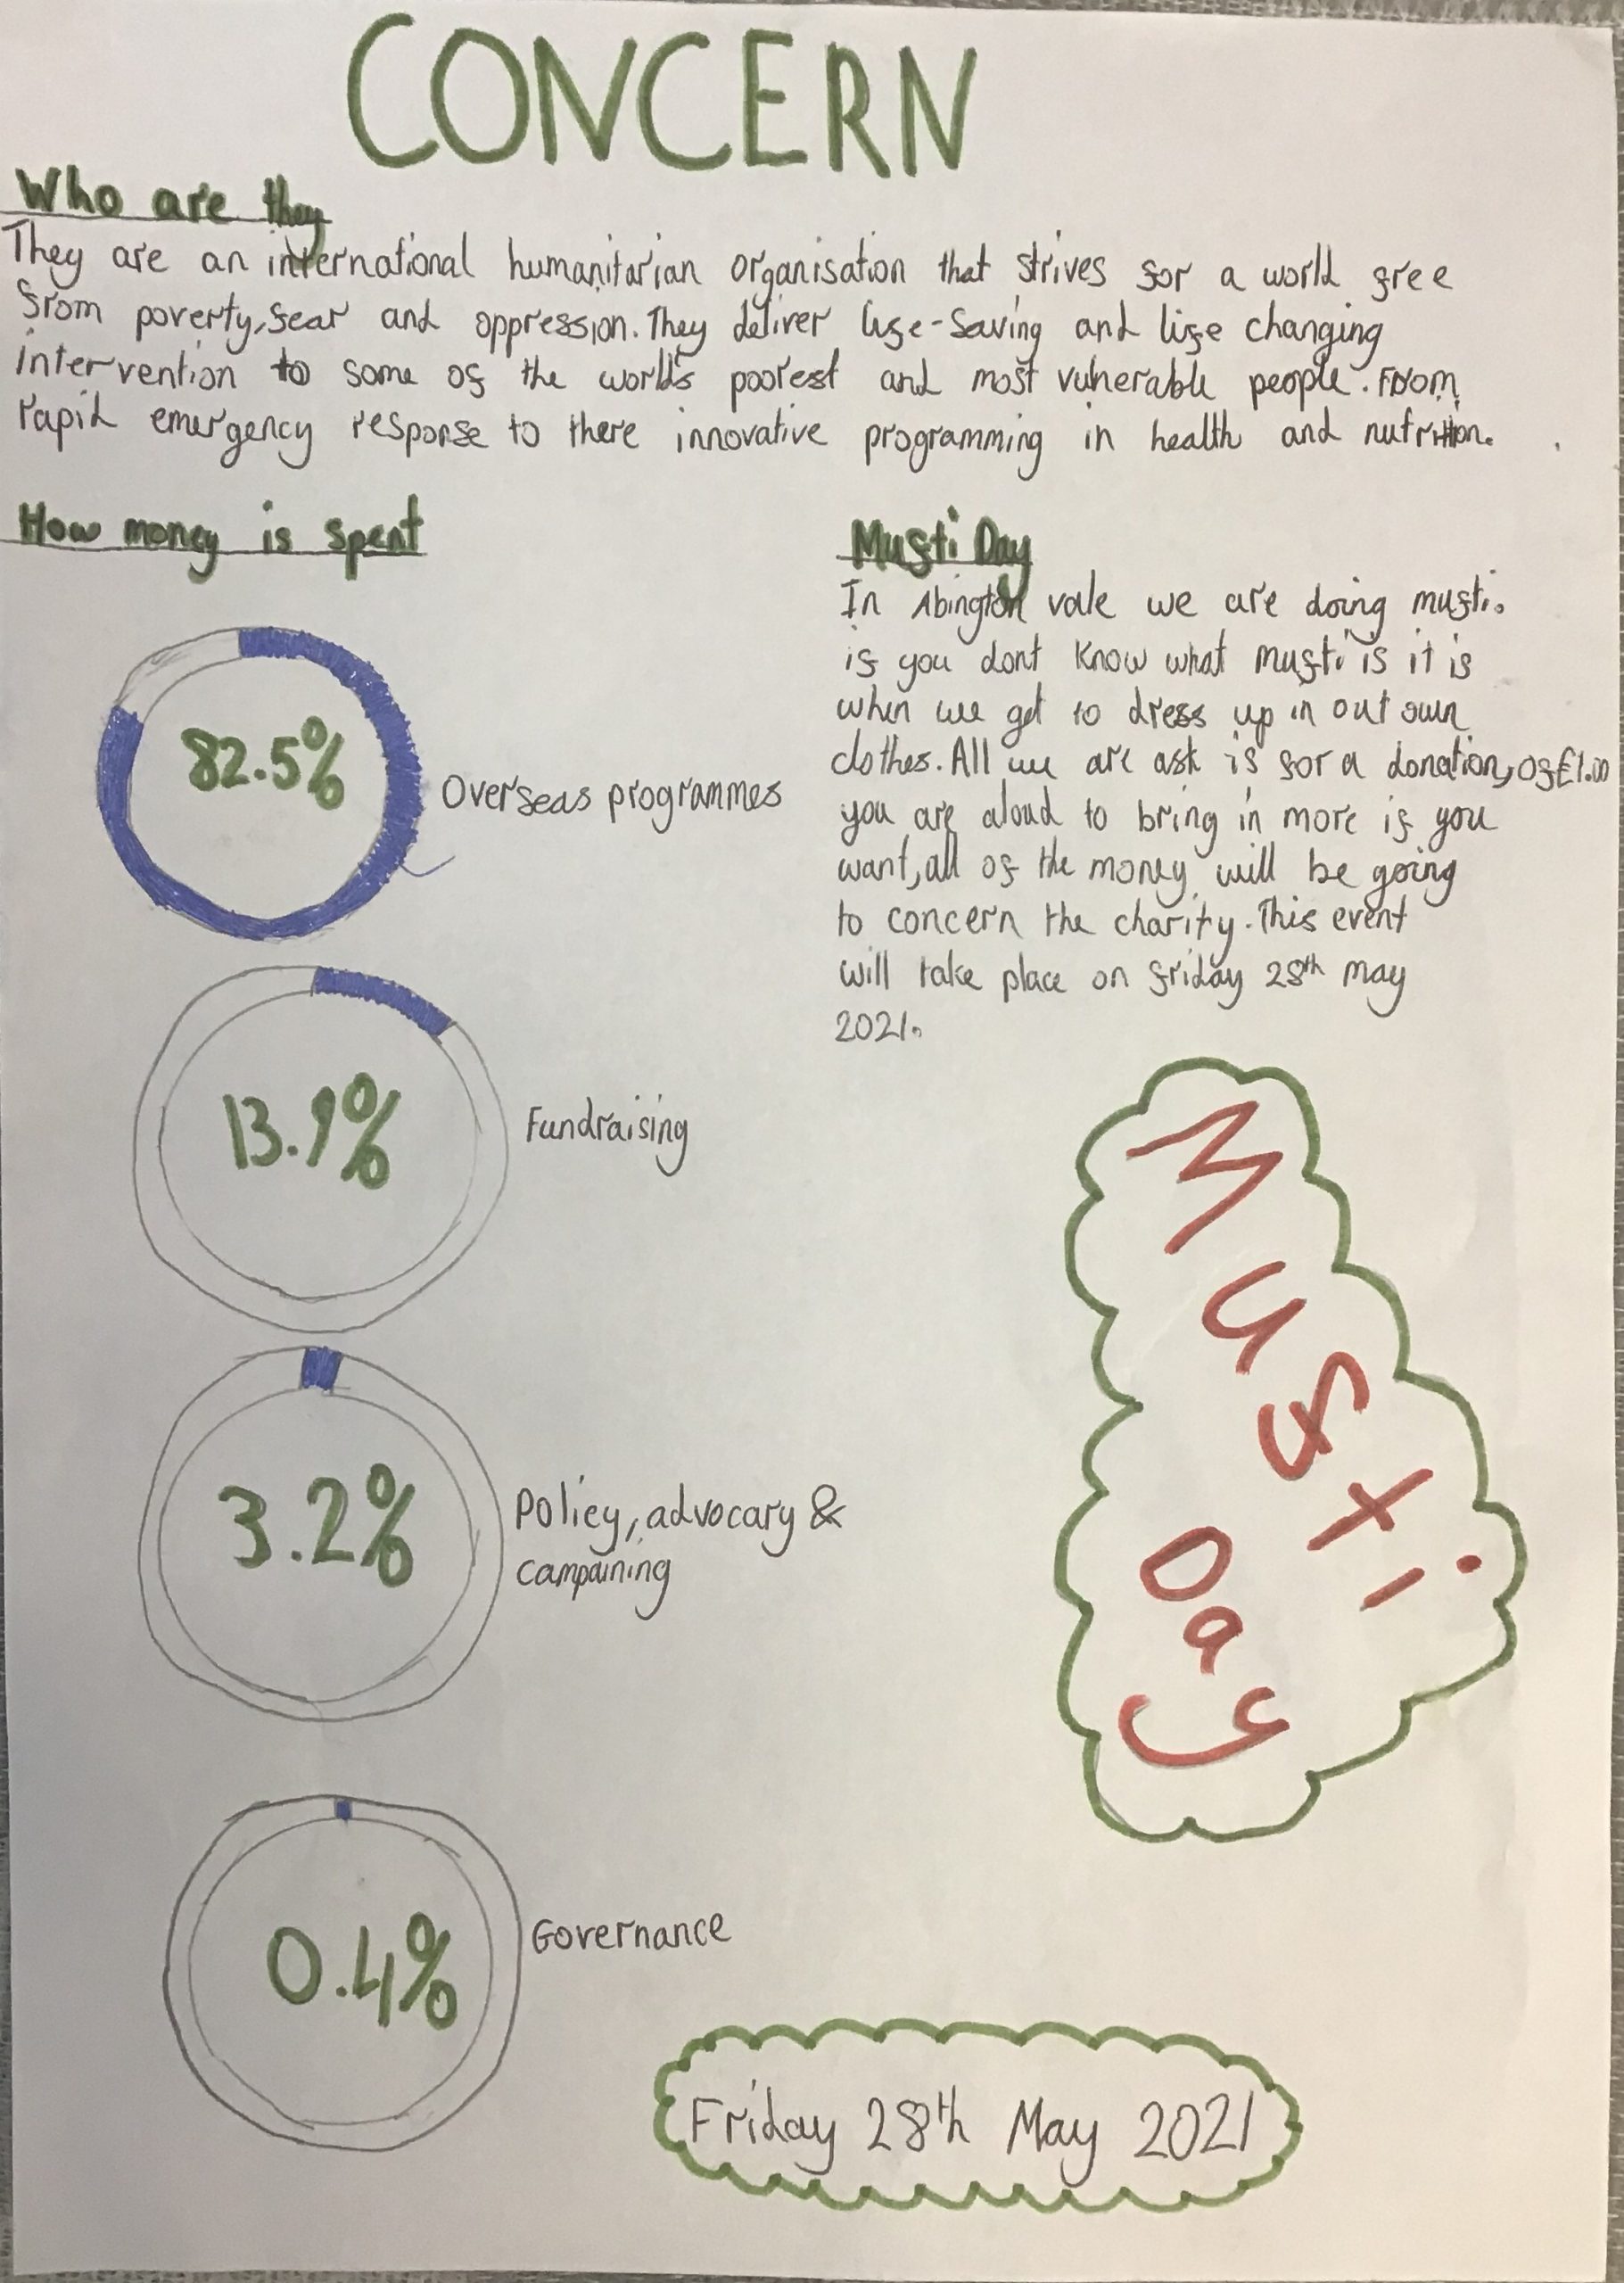 CONCERN
Who are they
They are an international humanitarian organisation that strives for a world free
from poverty, fear and oppression. They deliver life-saving and life changing
intervention to some of the world's poorest and most vulnerable people. From
rapid emergency response to there innovative programming in health and nutrition.
How money is spent
82.5%
Overseas programmes
13.9%
Fundraising
3.2%
Policy, advocary &
campaining
0.4%
Governance
Mufti Day
In Abington vale we are doing mufti.
if you dont know what mufti is it is
when we get to dress up in out own
clothes. All we are ask is for a donation, of £1.00
you are aloud to bring in more if you
want, all of the money will be going
to concern the charity. This event
will take place on friday 28th may
2021.
Mufti
Day
Friday 28th May 2021